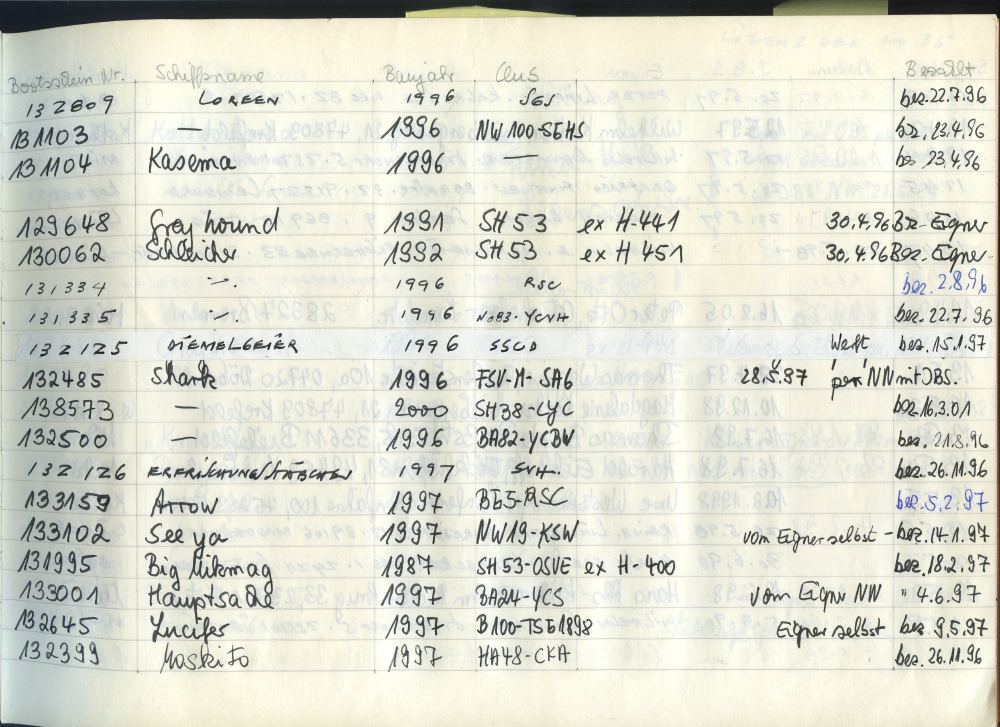 Bootsschein Nr. Schiffsname Baujahr Club Bezahlt
132809 LOREEN 1996 SGS bez. 22.7.96
131103 — 1996 NW100-SEHS bez. 23.4.96
131104 Kasema 1996 — bez. 23.4.96
129648 Greyhound 1991 SH53 ex H-441 30.4.96 Bez-Eigner
130062 Schleicher 1992 SH53 ex H 451 30.4.96 Bez. Eigner
131334 -"- 1996 RSC bez. 2.8.96
131335 -"- 1996 N083-YCNH bez. 22.7.96
132125 DIEMELGEIER 1996 SSCD Werft bez. 15.1.97
132485 Shark 1996 FSV-M-SA6 28.5.97 per NN mit JBS.
138573 — 2000 SH38-LYC bez. 16.3.01
132500 — 1996 BA82-YCBW bez. 21.8.96
132126 1997 SVH. bez. 26.11.96
133159 Arrow 1997 BE5-RSC bez. 5.2.97
133102 See ya 1997 NW19-KSW vom Eigner selbst - bez. 14.1.97
131995 Big Mikmag 1987 SH53-OSVE ex H-400 bez. 18.2.97
133001 Hauptsache 1997 BA24-YCS vom Eigner NW " 4.6.97
132645 Lucifer 1997 B100-TSG1898 Eigner selbst bez. 9.5.97
132399 Moskito 1997 HA48-CKA bez. 26.11.96